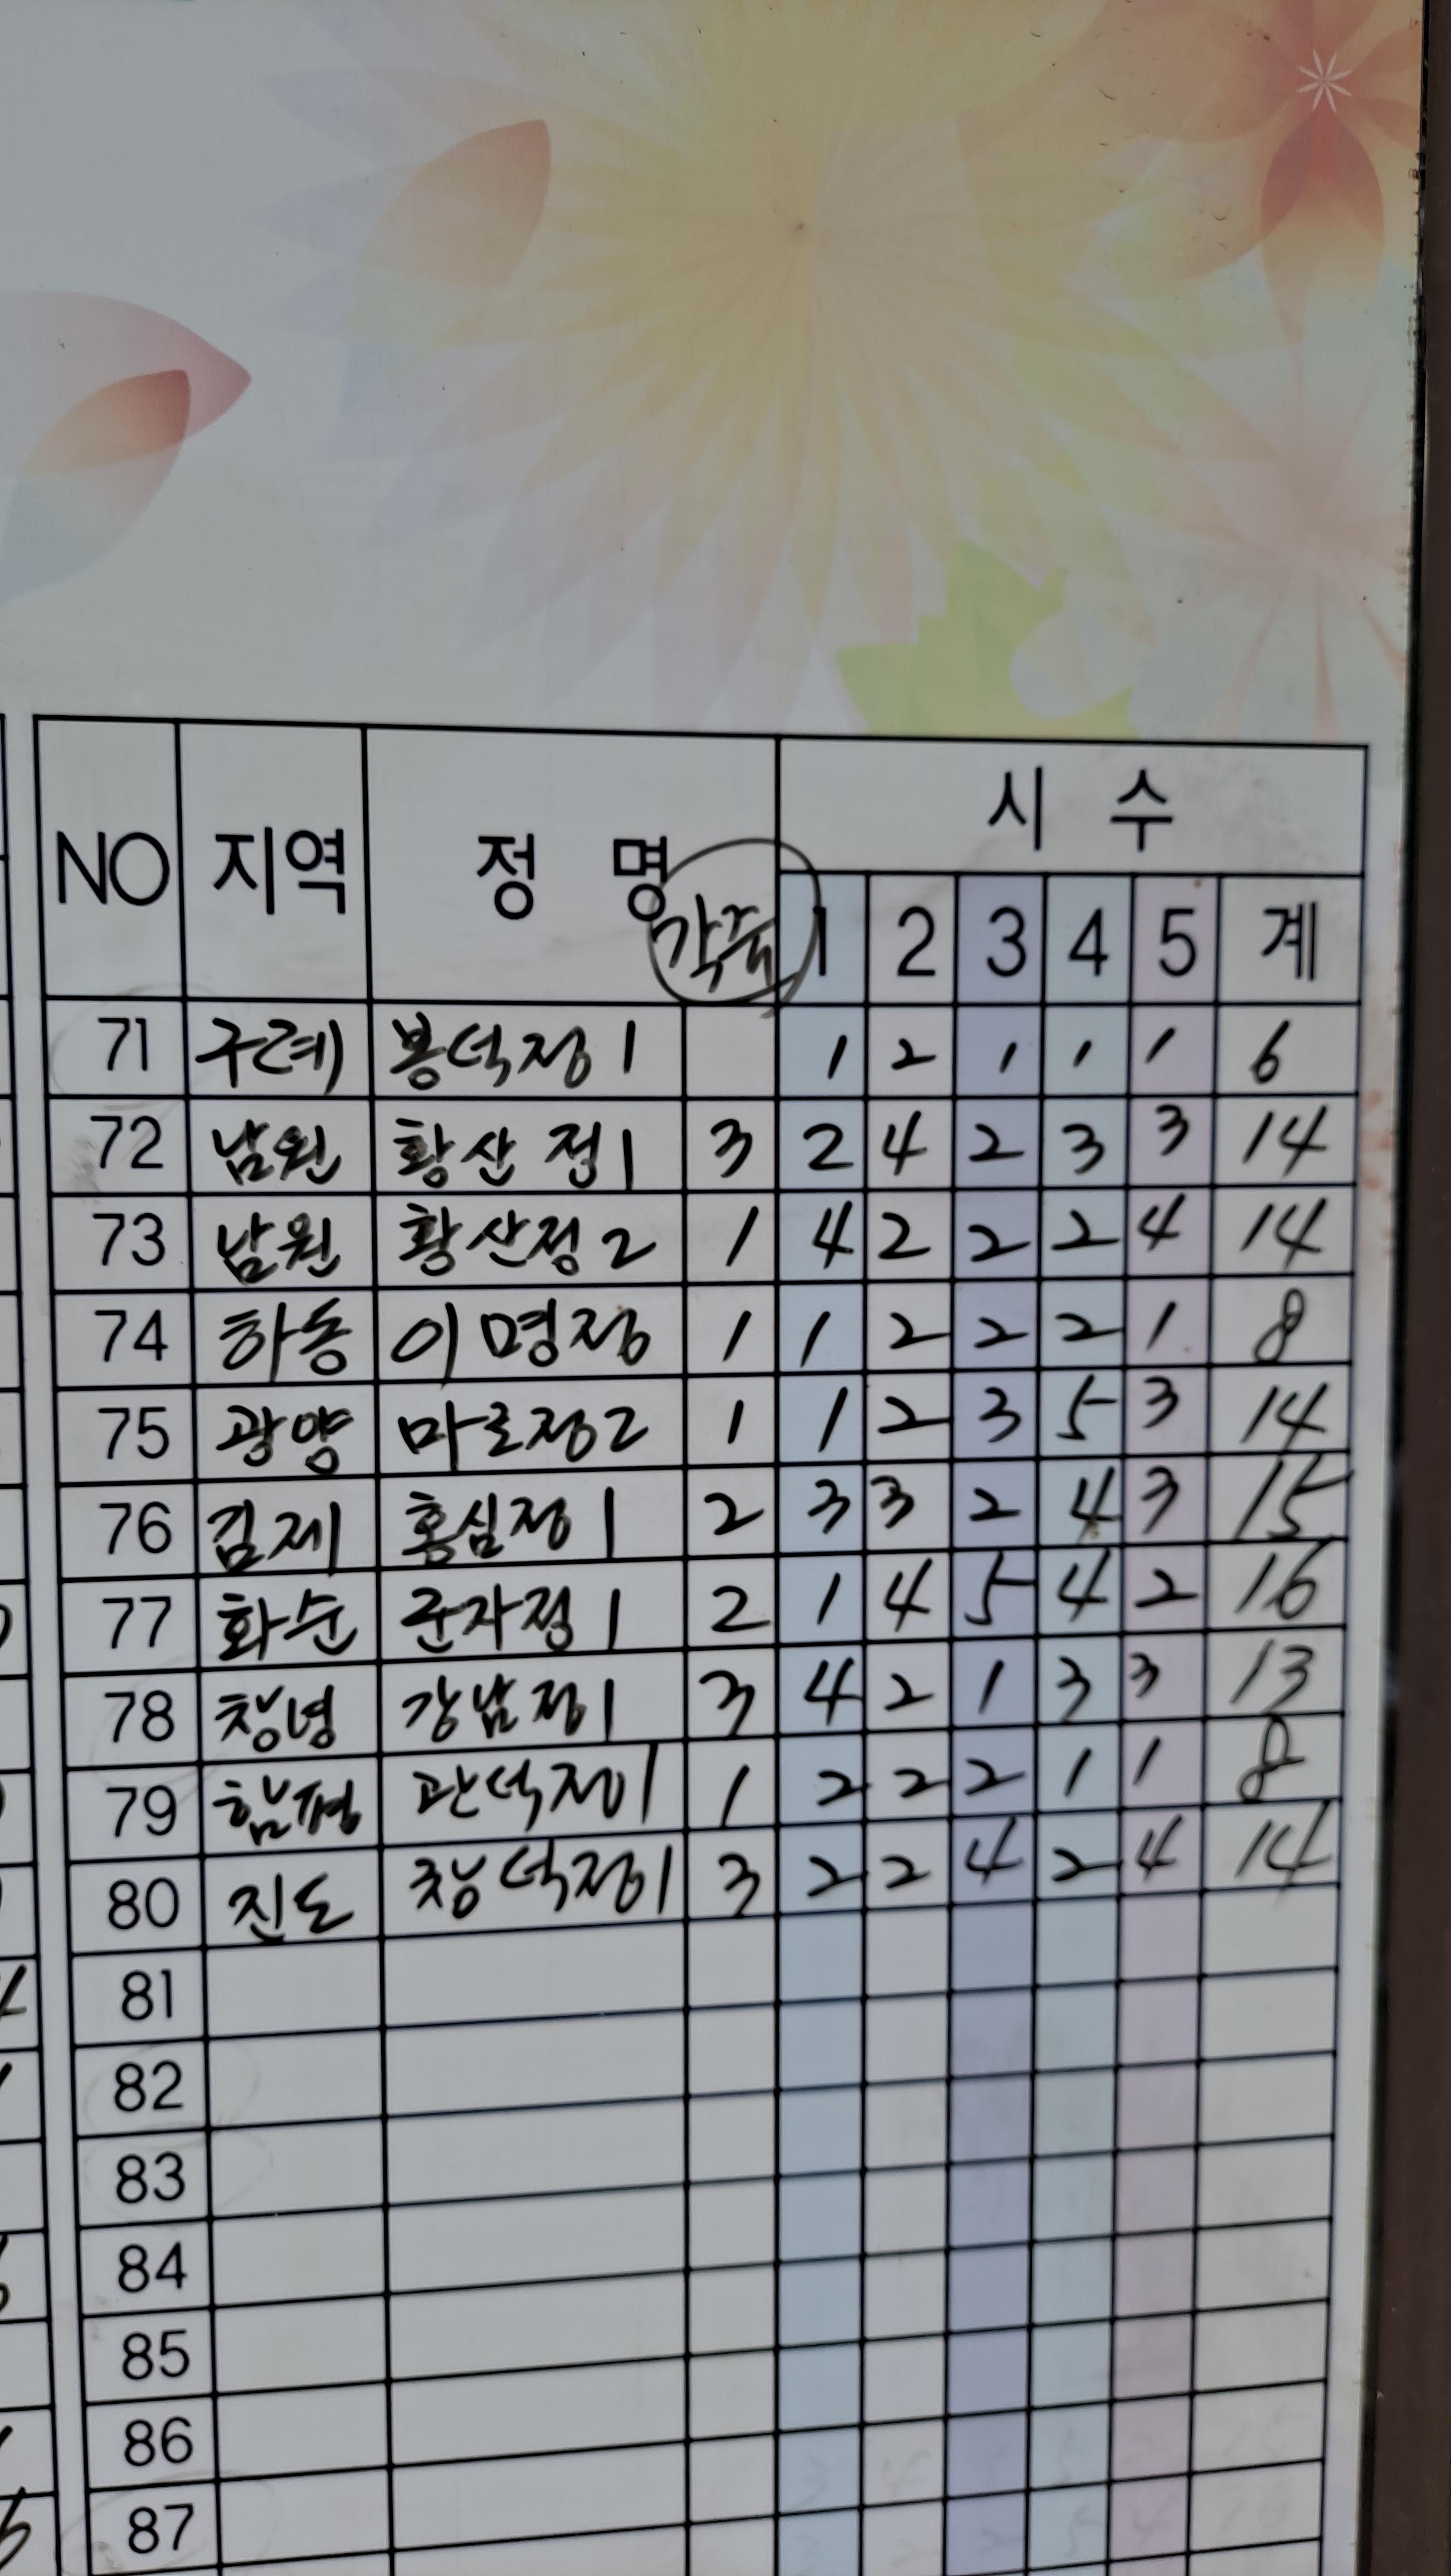 시 수
NO 지역 정 명 각궁 1 2 3 4 5 계
71 구례 봉덕정1 1 2 1 1 1 6
72 남원 황산정1 3 2 4 2 3 3 14
73 남원 황산정2 1 4 2 2 2 4 14
74 하동 이명정 1 1 2 2 2 1 8
75 광양 마로정2 1 1 2 3 5 3 14
76 김제 홍심정1 2 3 3 2 4 3 15
77 화순 군자정1 2 1 4 5 4 2 16
78 창녕 강남정1 3 4 2 1 3 3 13
79 함평 관덕정1 1 2 2 2 1 1 8
80 진도 창덕정1 3 2 2 4 2 4 14
81
82
83
84
85
86
87